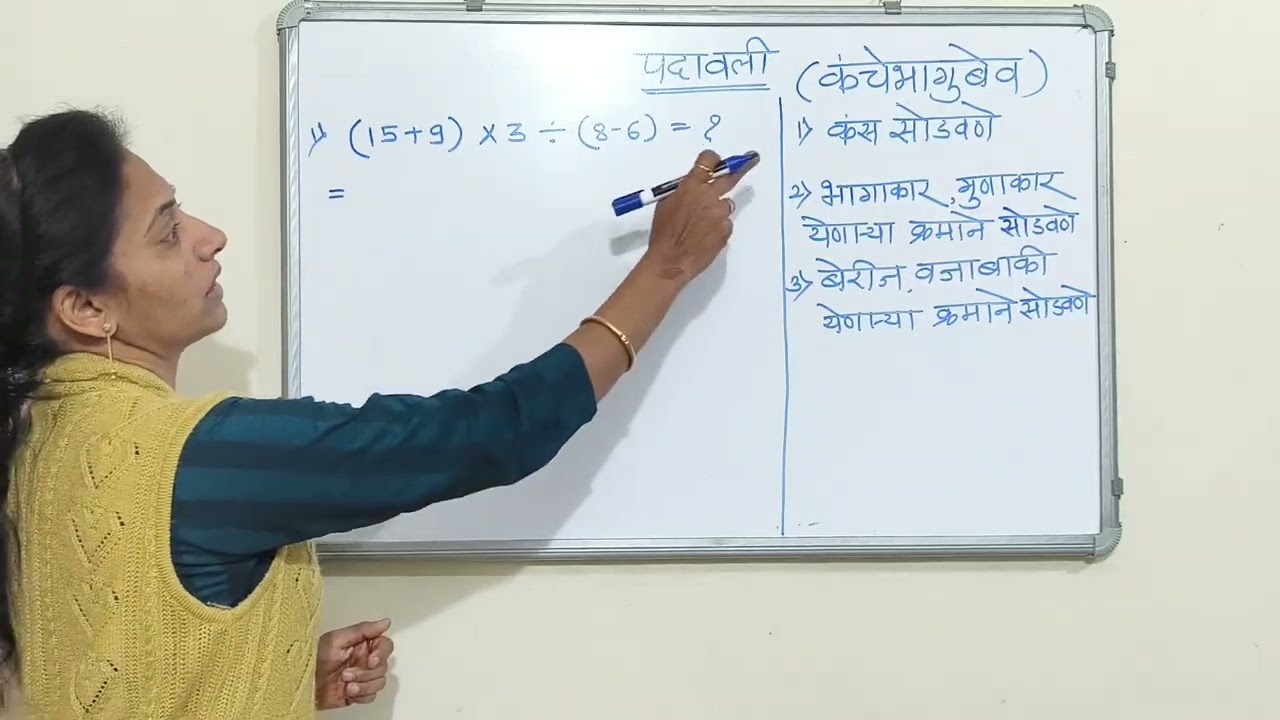 पदावली
(कंचेभागुबेव)
1) (15+9) × 3 ÷ (8-6) = ?
=
1) कंस सोडवणे
2) भागाकार, गुणाकार
येणाऱ्या क्रमाने सोडवणे
3) बेरीज, वजाबाकी
येणाऱ्या क्रमाने सोडवणे